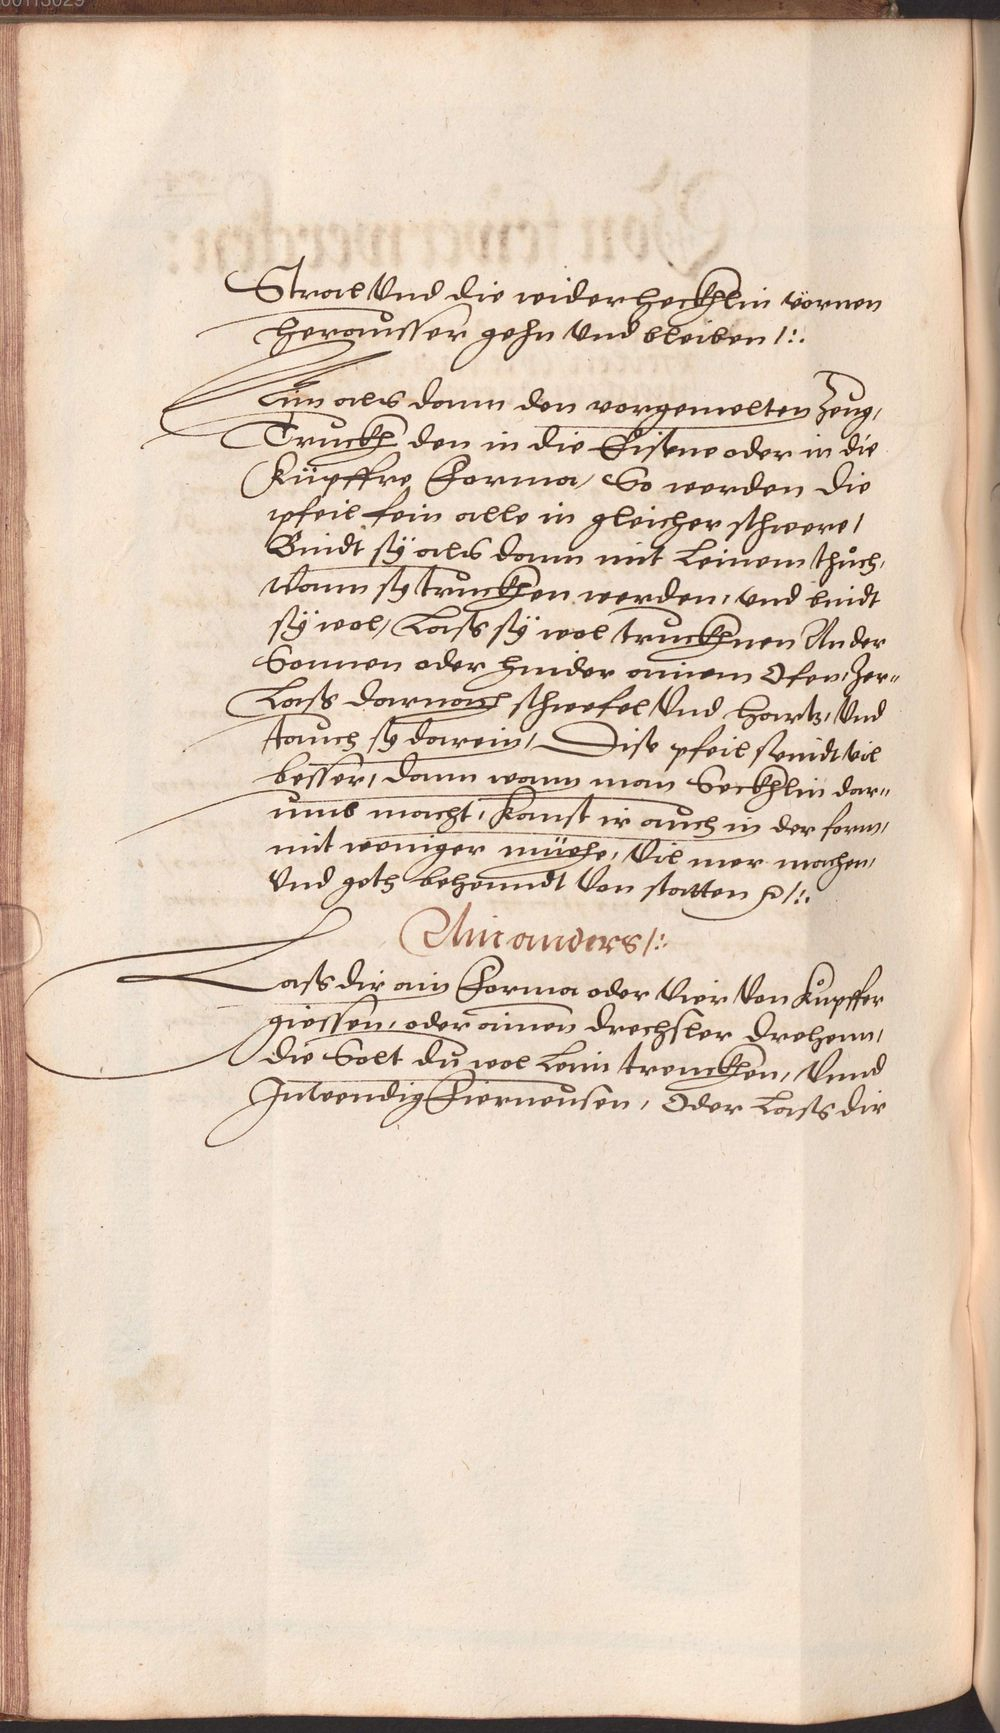 Stral Vnd die widerheckhlin vornen
heraŭsser gehn Vnd bleiben /:.
Nim als dann den vorgemelten Zeug,
Truckh den in die Eisene oder in die
Küpffre Forma, So werden die
pfeil fein alle in gleicher schwere,
Bindt sÿ als dann mit Leinem thŭch,
Wann sy truckhen werden, vnd bindt
sÿ wol, Lass sÿ wol truckhnen An der
Sonnen oder hinder ainem Ofen, Zer=
Lass darnach schwefel Vnd hartz, Vnd
tauch sy darein, Dise pfeil seindt vil
besser, dann wann man Seckhlin dar=
umb macht, Kanst ir auch in der form,
mit weniger müehe, Vil mer machen,
Vnd geth behenndt Von statten /:.
Ain anders /:.
Lass dir ain Forma oder Vier Von Kŭpffer
giessen, oder ainen drechsler drehenn,
die Solt dŭ wol Leim trenckhen, Vnnd
Inwendig Fierneŭsen, Oder Lass dir